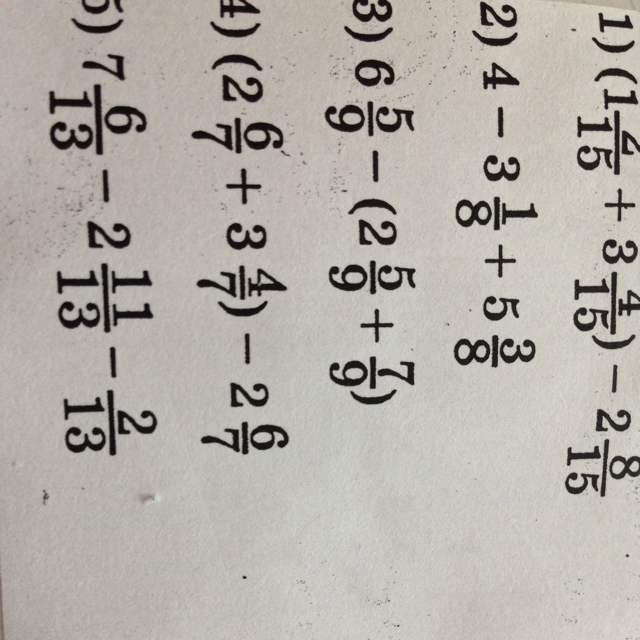 1) (1 /15 + 3 4/15) − 2 8/15
2) 4 − 3 1/8 + 5 3/8
3) 6 5/9 − (2 5/9 + 7/9)
4) (2 6/7 + 3 4/7) − 2 6/7
5) 7 6/13 − 2 11/13 − 2/13